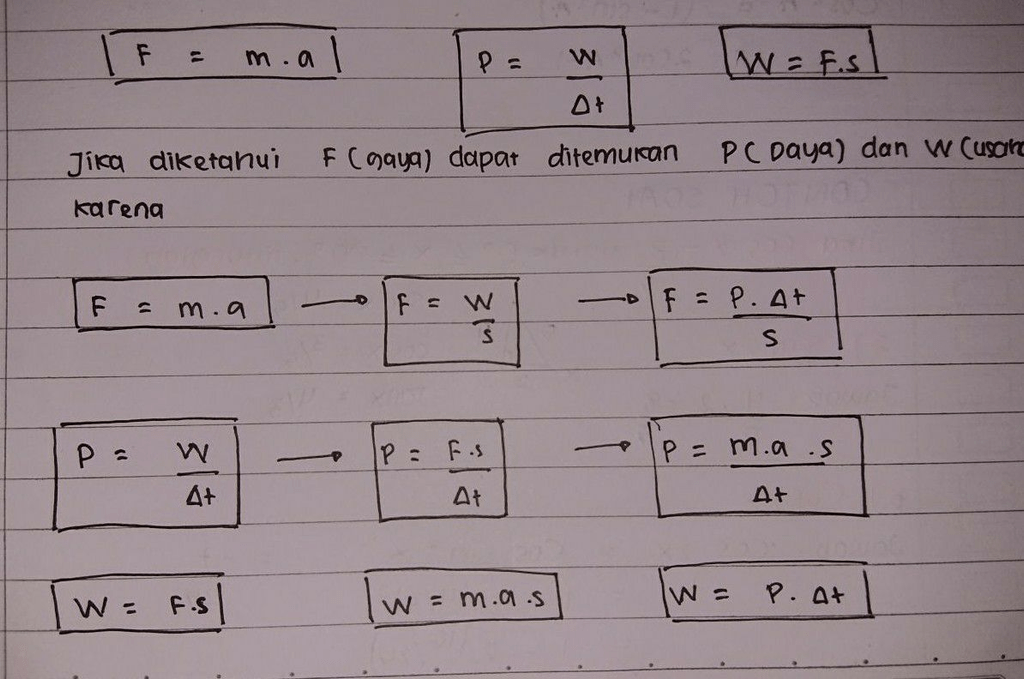 F = m.a P = W/Δt W = F.s
Jika diketahui F (gaya) dapat ditemukan P (Daya) dan W (usaha
karena
F = m.a → F = W/s → F = P.Δt/s
P = W/Δt → P = F.s/Δt → P = m.a.s/Δt
W = F.s W = m.a.s W = P.Δt